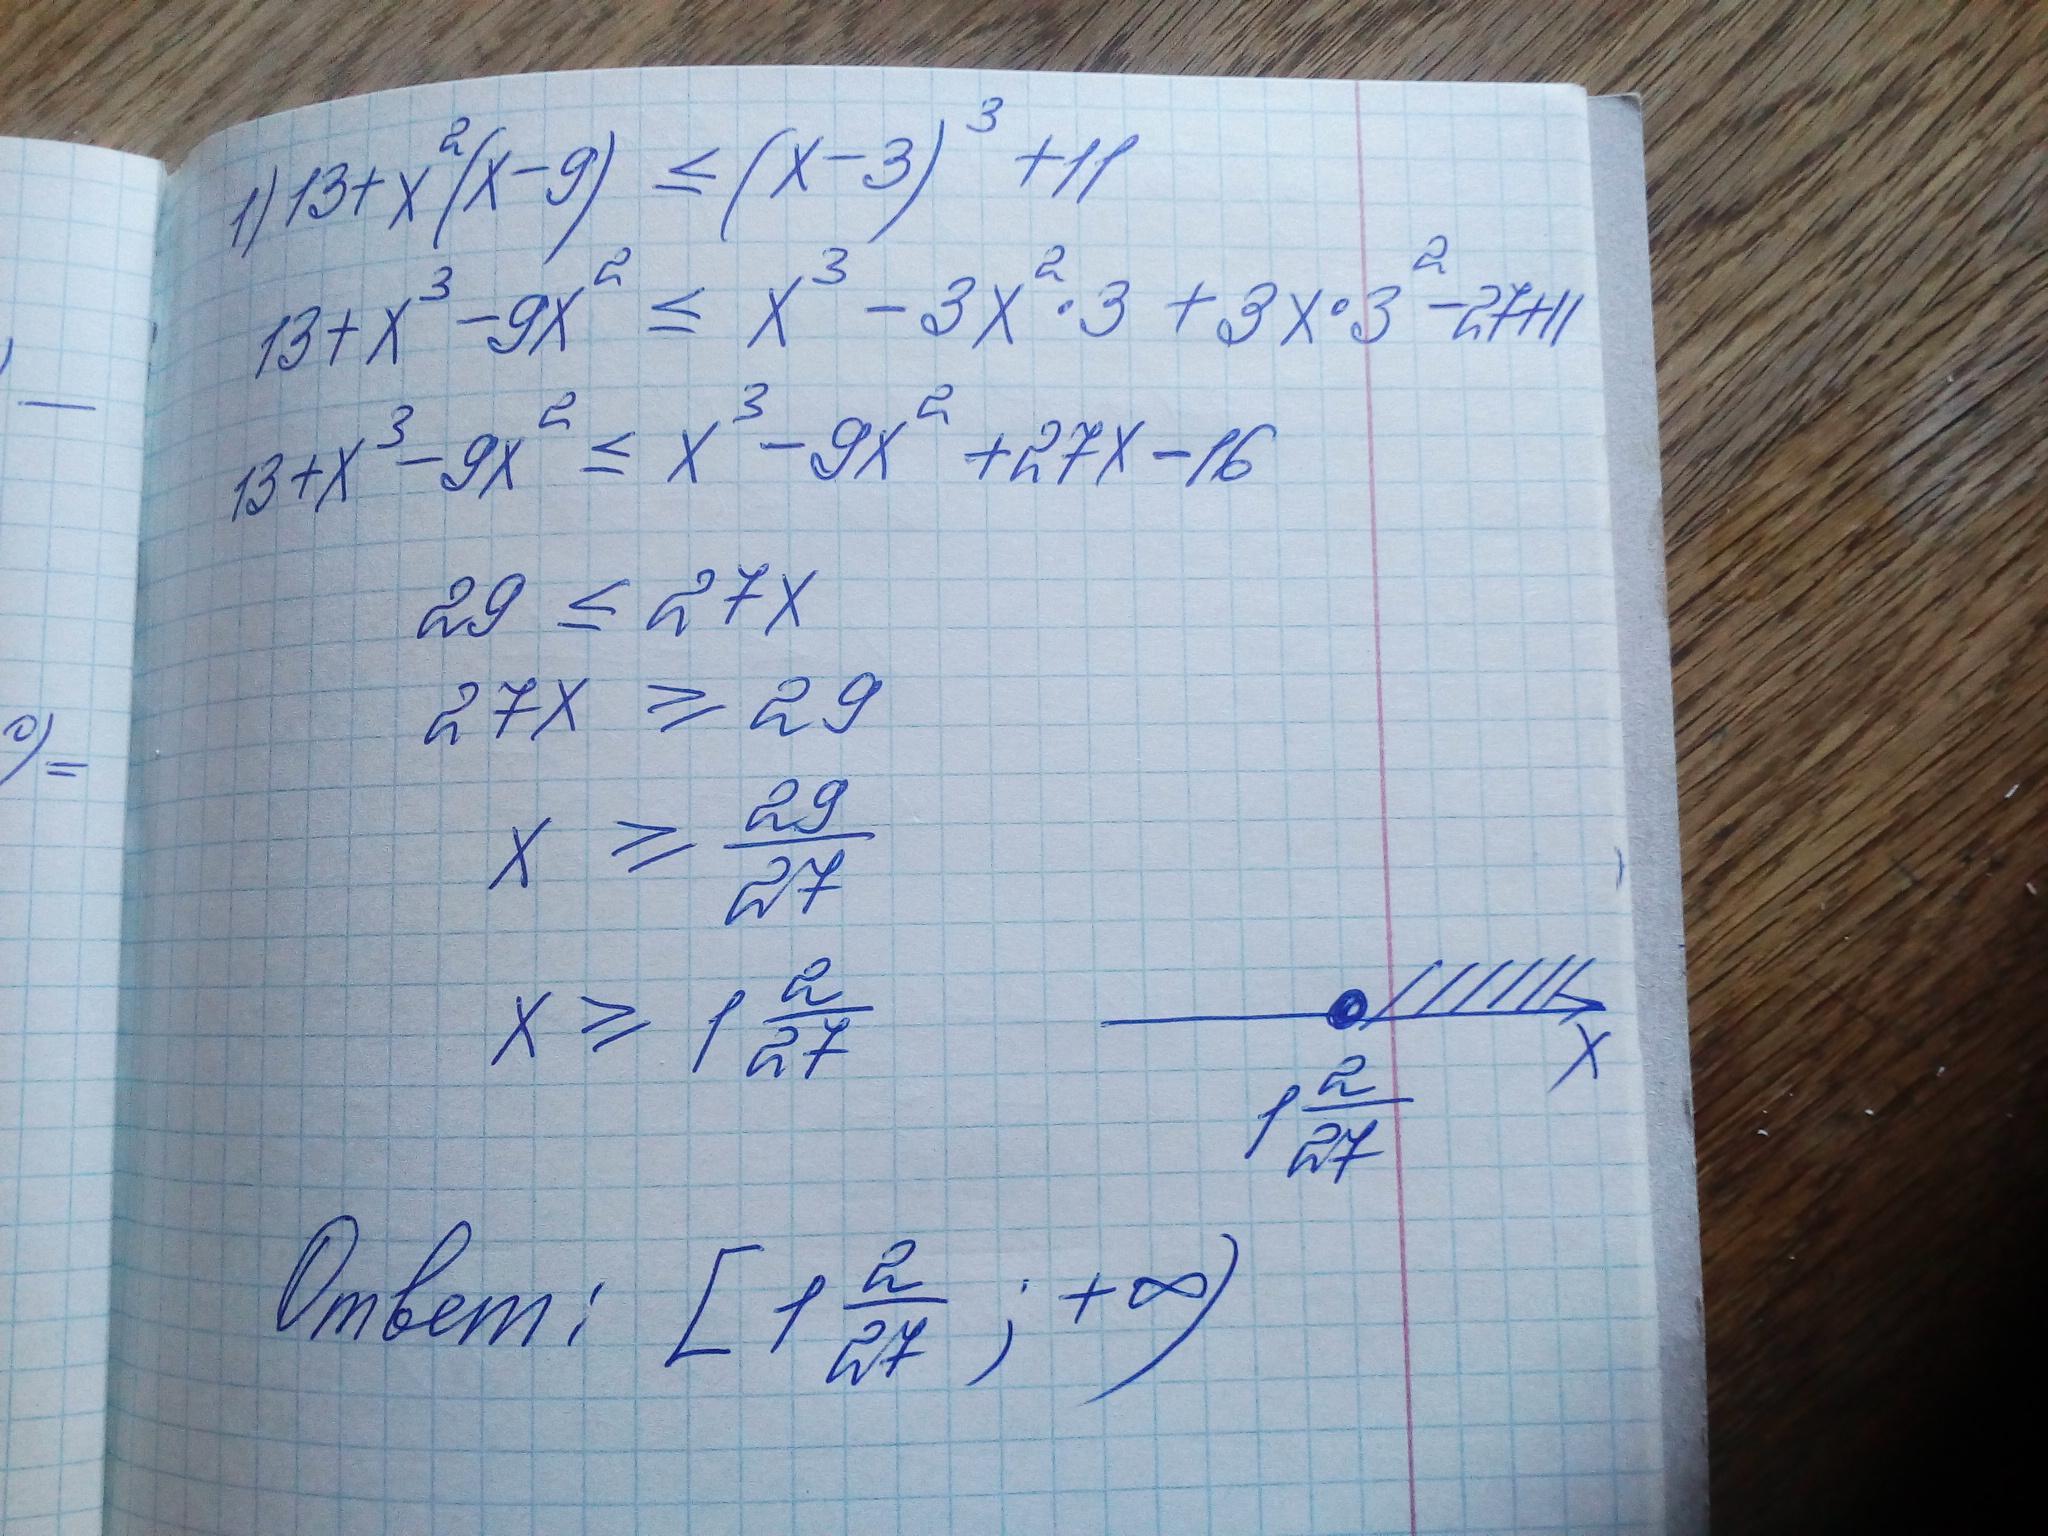 1) 13+x²(x-9) ≤ (x-3)³ +11
13+x³-9x² ≤ x³ - 3x²·3 + 3x·3² -27+11
13+x³-9x² ≤ x³-9x² +27x-16
29 ≤ 27x
27x ≥ 29
x ≥ 29/27
x ≥ 1 2/27
x
1 2/27
Ответ: [1 2/27 ; +∞)